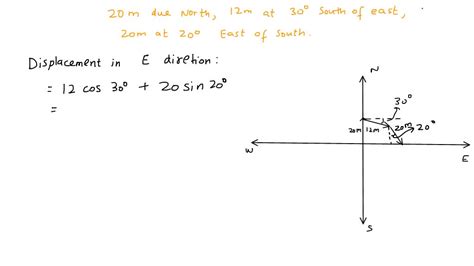 20m due North, 12m at 30° South of east,
20m at 20° East of South.
Displacement in E diretion:
= 12 cos 30° + 20 sin 20°
=
N
30°
20m 12m 20m 20°
W
E
S